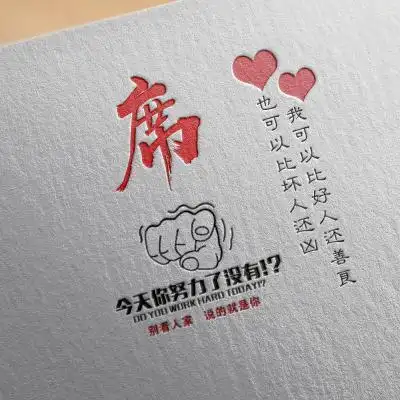 席
我可以比好人还善良
也可以比坏人还凶
今天你努力了没有!?
DO YOU WORK HARD TODAY!?
别看人家 说的就是你